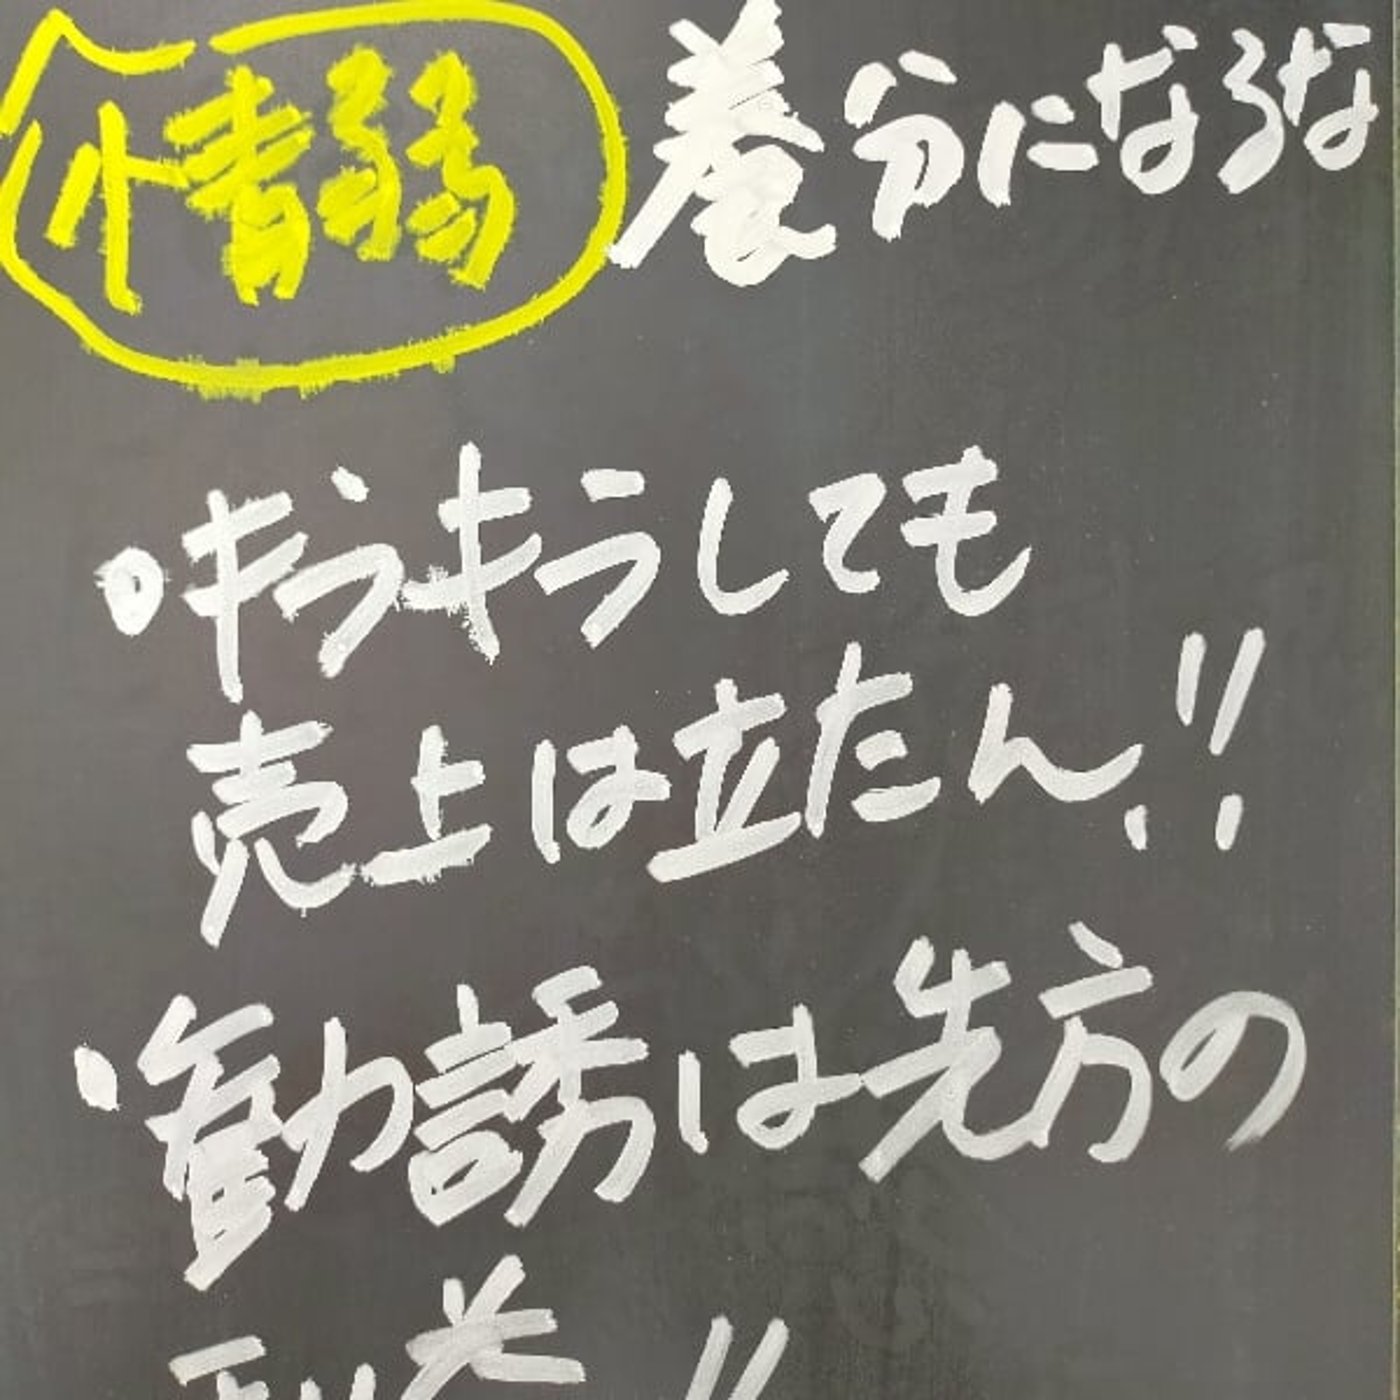 情弱 養分になるな
・キラキラしても
売上は立たん!!
・勧誘は先方の
利益!!